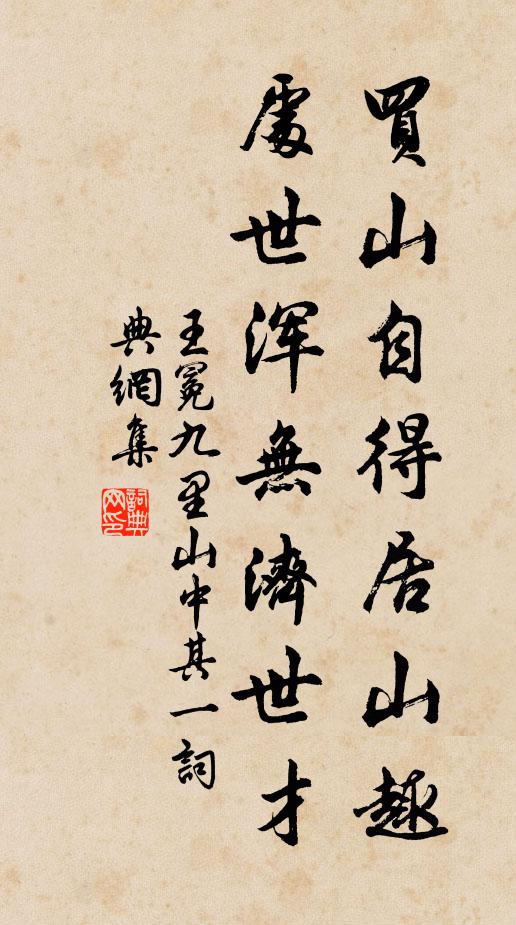 買山自得居山趣
處世渾無濟世才
王冕九里山中其一詞
典網集
詞典網印